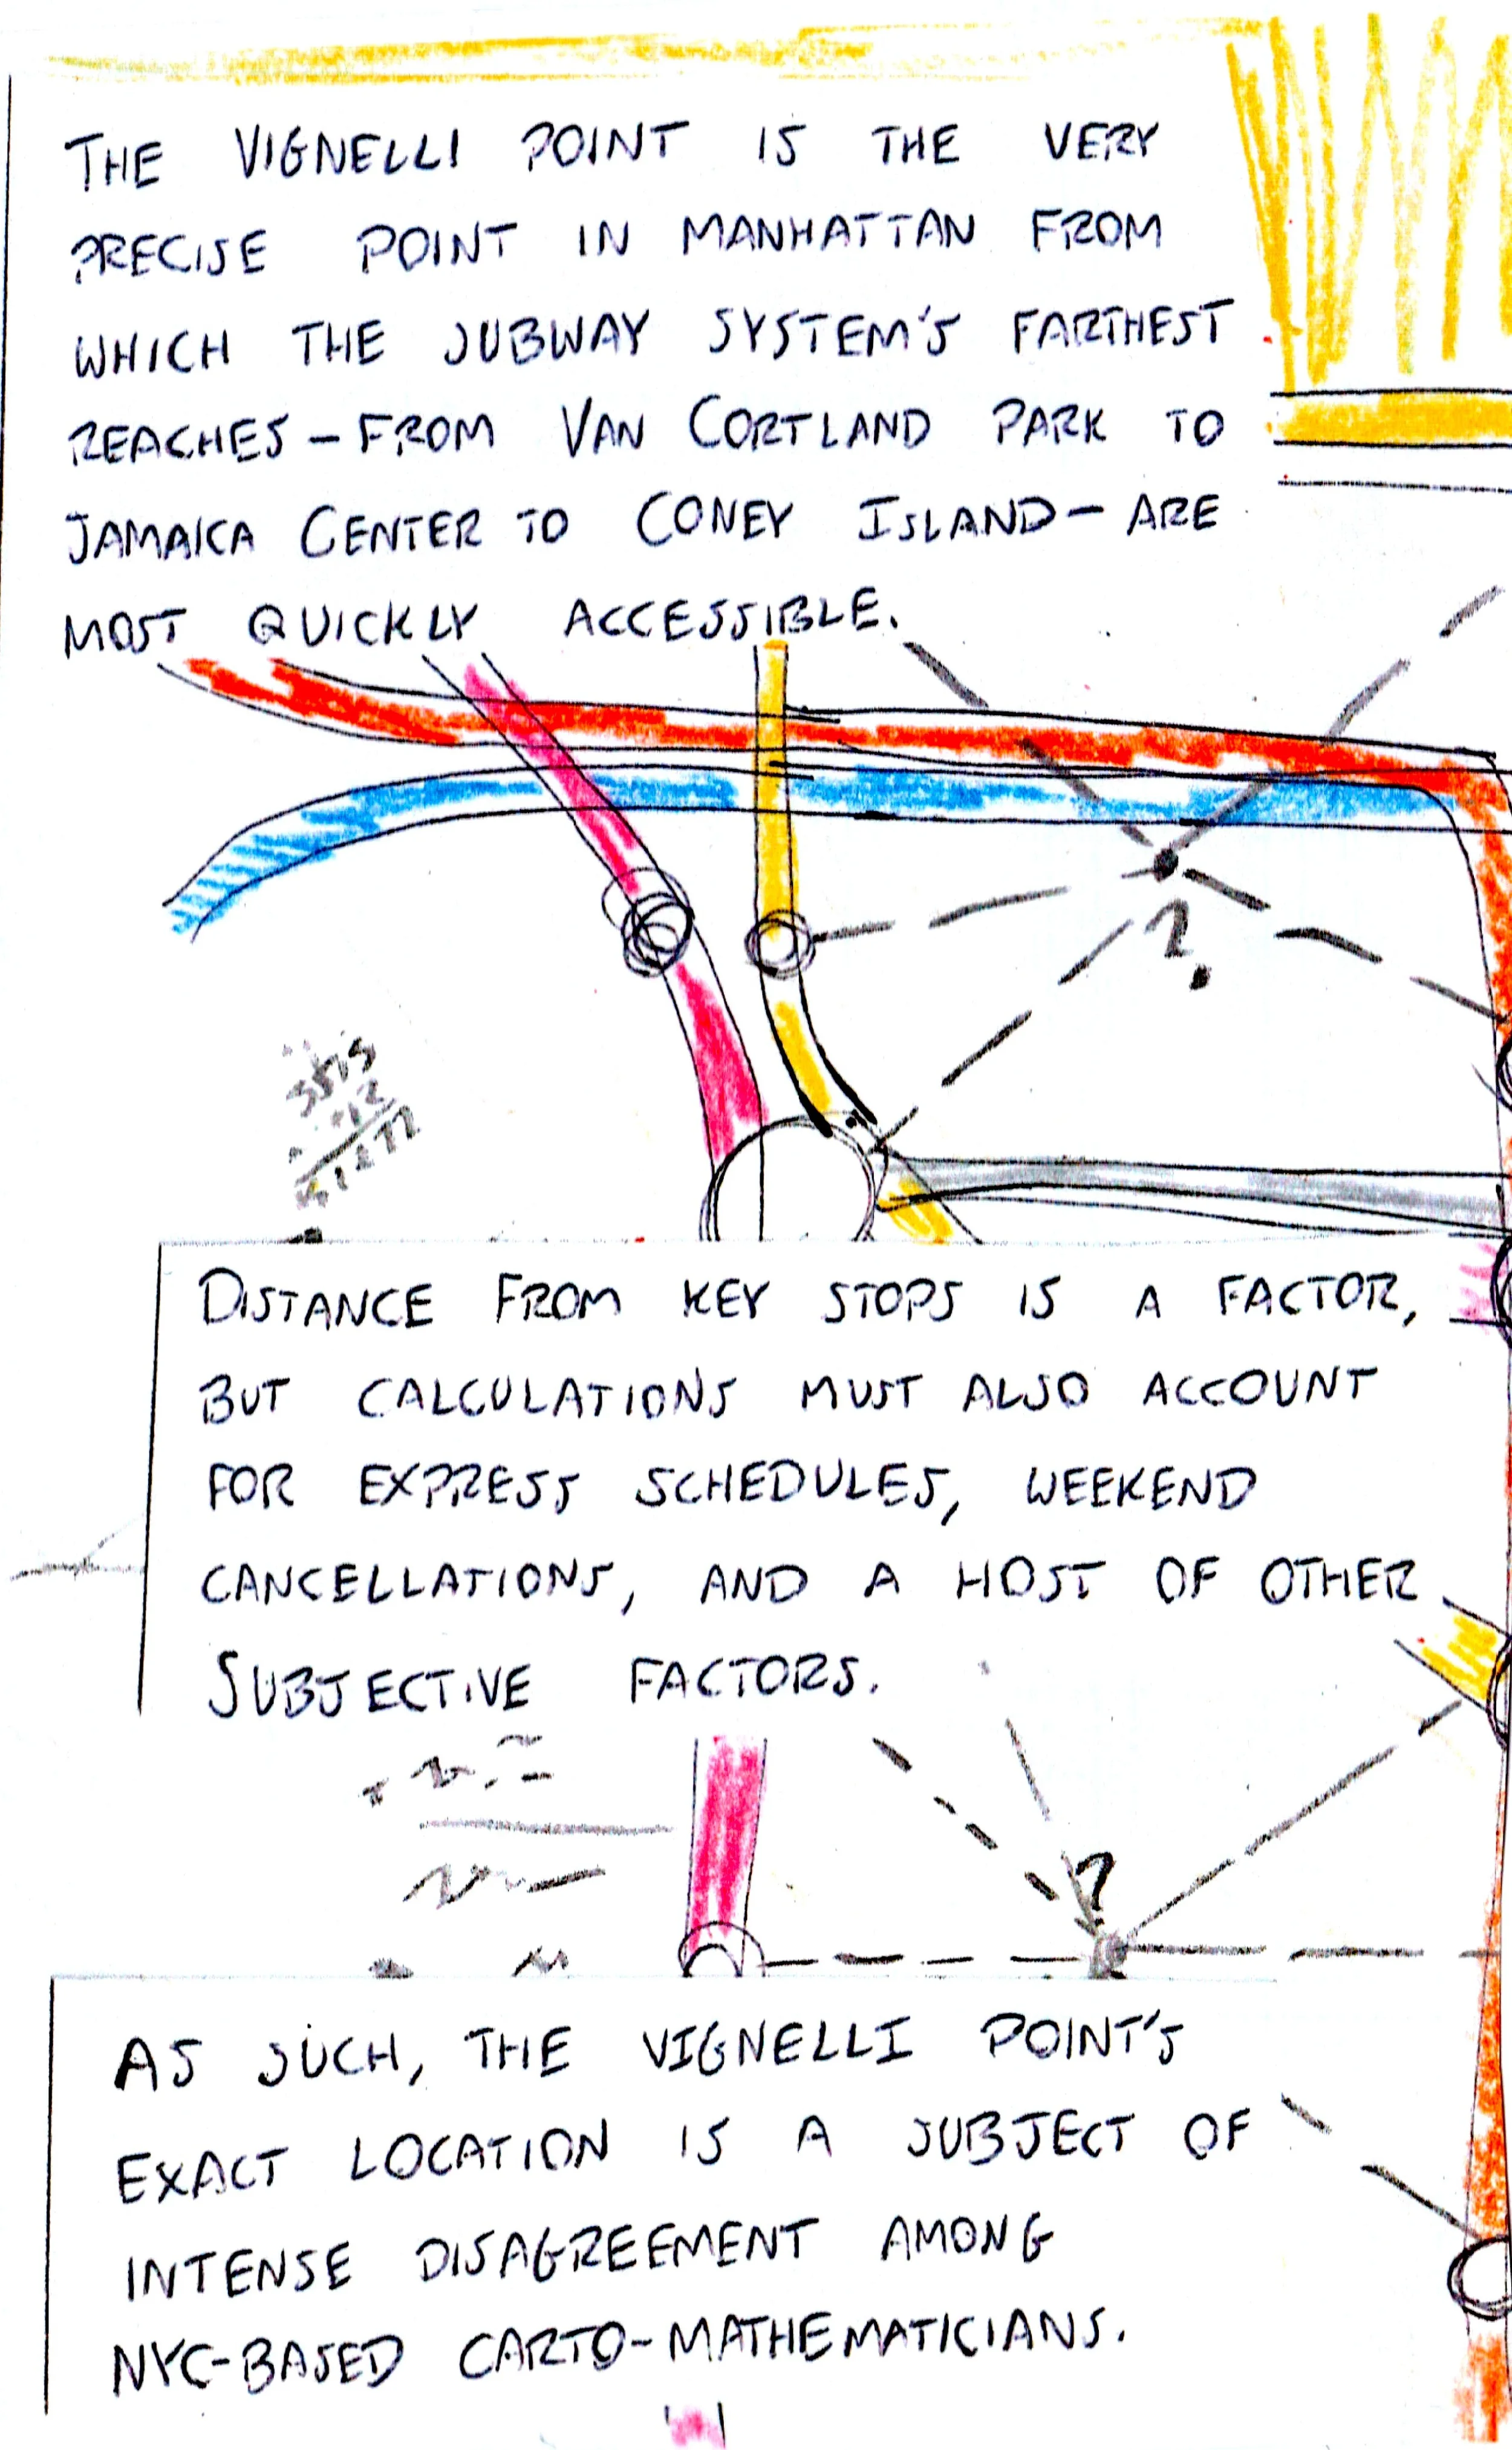 THE VIGNELLI POINT IS THE VERY
PRECISE POINT IN MANHATTAN FROM
WHICH THE SUBWAY SYSTEM'S FARTHEST
REACHES - FROM VAN CORTLAND PARK TO
JAMAICA CENTER TO CONEY ISLAND - ARE
MOST QUICKLY ACCESSIBLE.
?
DISTANCE FROM KEY STOPS IS A FACTOR,
BUT CALCULATIONS MUST ALSO ACCOUNT
FOR EXPRESS SCHEDULES, WEEKEND
CANCELLATIONS, AND A HOST OF OTHER
SUBJECTIVE FACTORS.
?
AS SUCH, THE VIGNELLI POINT'S
EXACT LOCATION IS A SUBJECT OF
INTENSE DISAGREEMENT AMONG
NYC-BASED CARTO-MATHEMATICIANS.